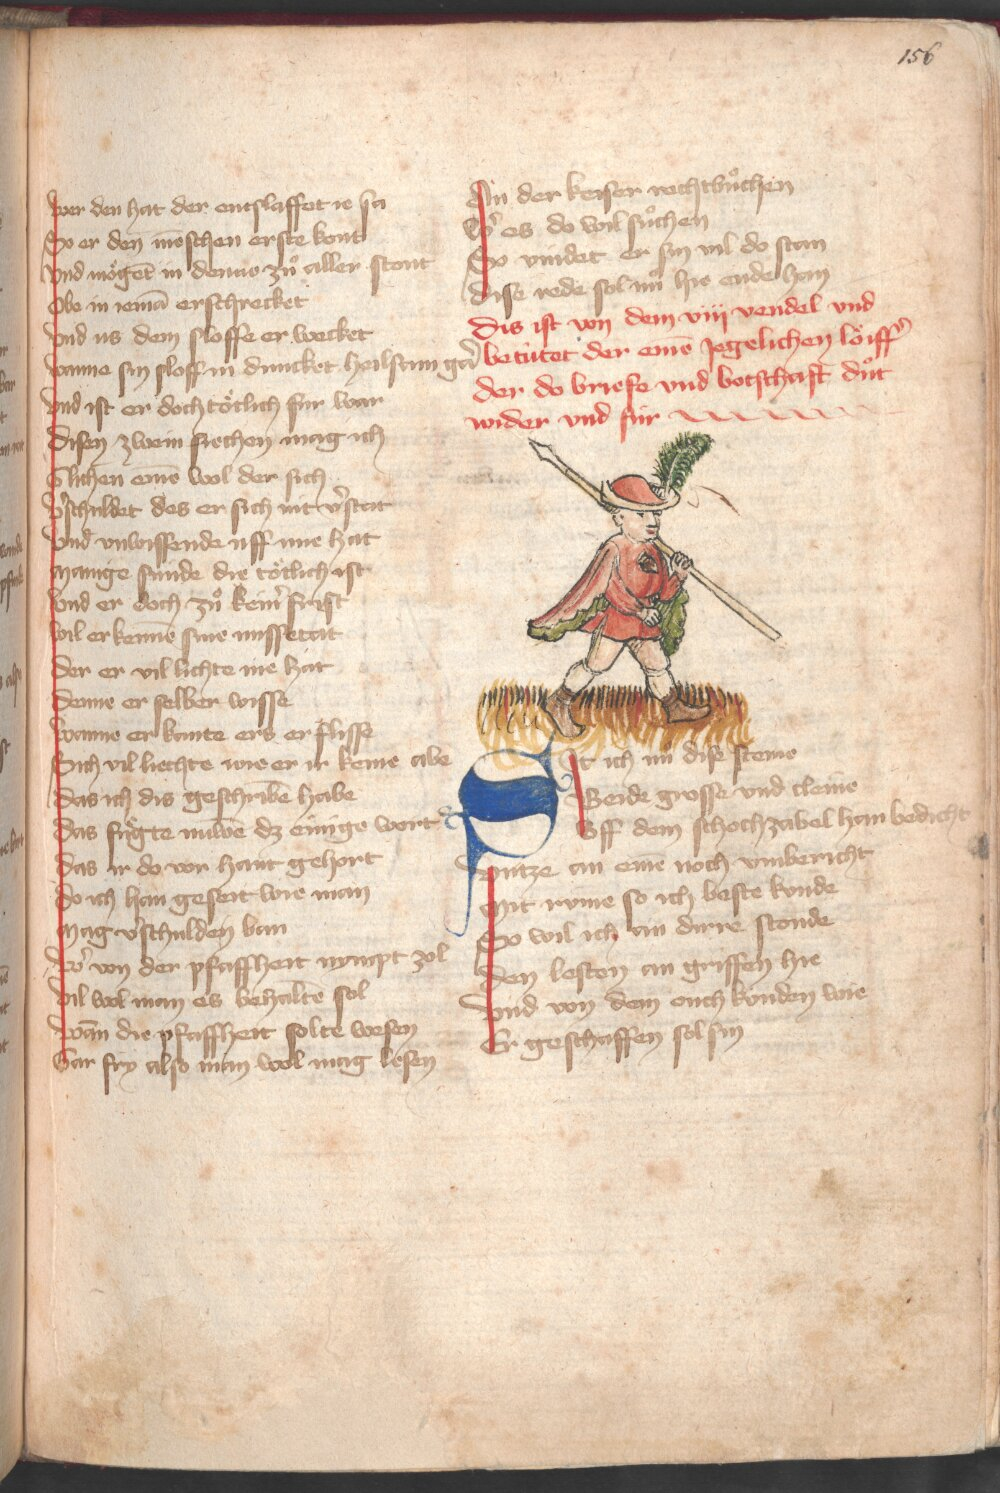 156
Wer den hat der entslaffet ie sa
So er den menschen erste kont
Und möget in denne zuͦ aller stont
Obe in iemā erschrecket
Und us dem sloffe er wecket
Wanne sin sloff in duncket heilsam gar
Und ist er doch tötlich für war
Disen zwein siechen mag ich
Glichen eine wol der sich
Vˢschuldet des er sich nit vˢstat
Und unwissende uff ime hat
Manige sünde die tötlich ist
Und er doch zuͦ keinˢ frist
Wil erkenne sine missetat
Der er vil lichte me hat
Denne er selber wisse
Wanne er kante ers er flisse
Sich vil liechte wie er ir keme abe
Das ich dis geschribē habe
Das fuͤgte nuwē dz einige wort
Das ir do vor hant gehort
Do ich han geseit wie man
Mag vˢschulden ban
Wˢ von der pfaffheit nympt zol
Vil wol man es behaltē sol
Wān die pfaffheit solte wesen
Gar fry also man wol mag lesen
An der keiser rechtbuͦchen
Wˢ es do wil suͦchen
So vindet er sin vil do stan
Dise rede sol nuͦ hie ende han
Dis ist von dem viij vendel und
betütet der eine jegelichen löiffˢ
der do briefe und botschaft duͦt
wider und für
Sit ich nu dise steine
Beide grosse und cleine
Uff dem schochzabel han bedicht
Untze an eine noch umbericht
Mit rvme so ich beste kunde
So wil ich an dirre stonde
Den lesten an griffen hie
Und von dem euch künden wie
Er geschaffen sol sin